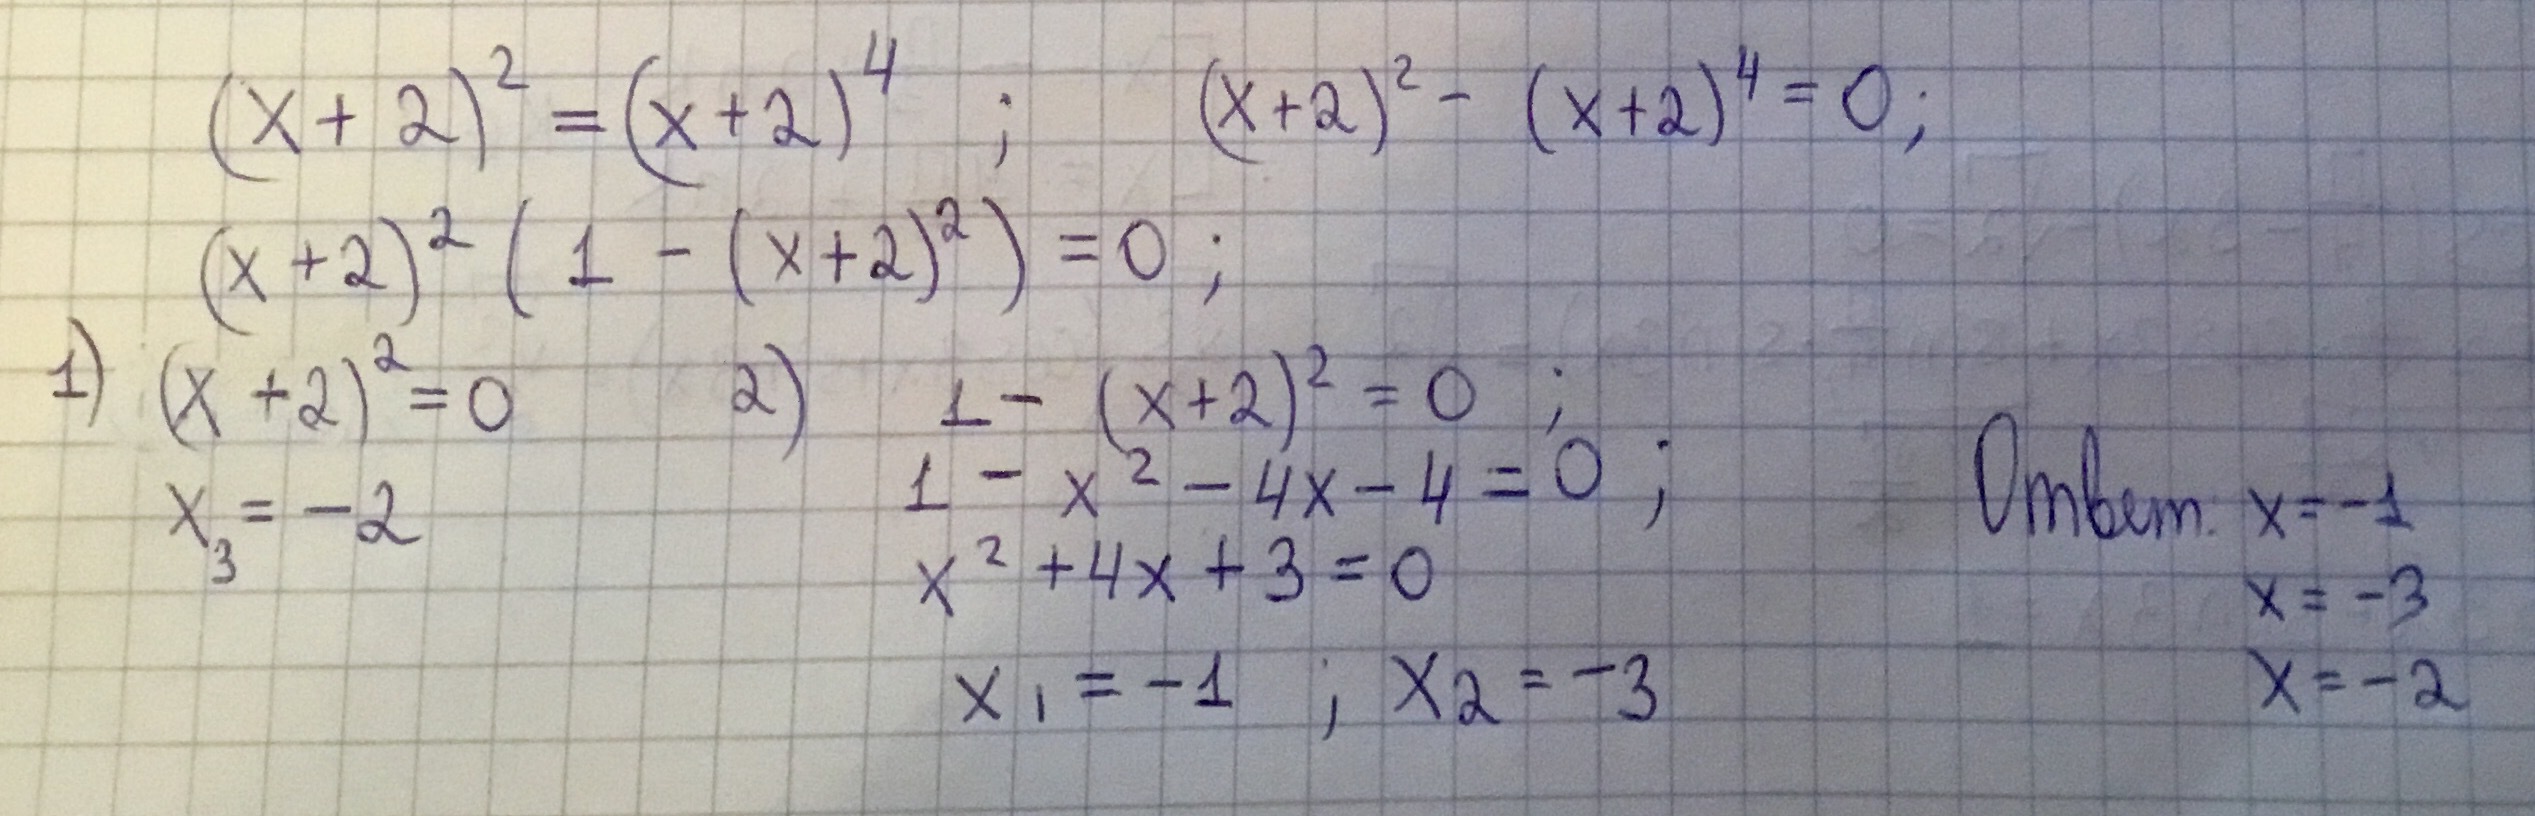 (x+2)² = (x+2)⁴ ; (x+2)² - (x+2)⁴ = 0;
(x+2)² (1 - (x+2)²) = 0 ;
1) (x+2)² = 0 2) 1 - (x+2)² = 0 ;
1 - x² - 4x - 4 = 0 ;
x₃ = -2
x² + 4x + 3 = 0
x₁ = -1 ; x₂ = -3
Ответ: x = -1
x = -3
x = -2